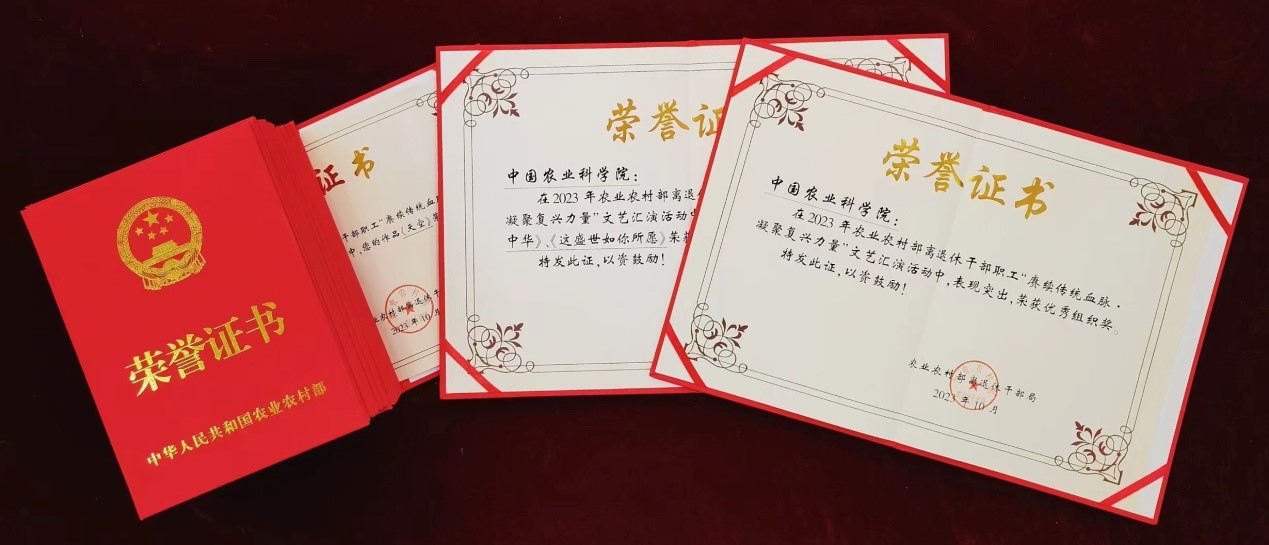 荣誉证书
中华人民共和国农业农村部
证书
干部职工“赓续传统血脉
中，您的作品《天空》
业农村部离退休干
2023 年 10 月
荣誉证
中国农业科学院：
在 2023 年农业农村部离退休
凝聚复兴力量”文艺汇演活动中
中华》、《这盛世如你所愿》荣获
特发此证，以资鼓励！
荣誉证书
中国农业科学院：
在 2023 年农业农村部离退休干部职工“赓续传统血脉·
凝聚复兴力量”文艺汇演活动中，表现突出，荣获优秀组织奖。
特发此证，以资鼓励！
农业农村部离退休干部局
2023 年 10 月